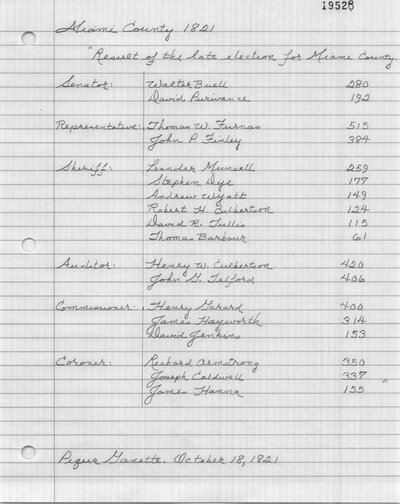 19528
Miami County 1821
"Result of the late election for Miami County.
Senator: Walter Buell 280
David Purviance 192
Representative: Thomas W. Furnas 515
John P. Finley 384
Sheriff: Leander Munsell 259
Stephen Dye 177
Andrew Wyatt 149
Robert H. Culbertson 124
David R. Tullis 115
Thomas Barbour 61
Auditor: Henry W. Culbertson 420
John G. Telford 406
Commissioner: Henry Garard 400
James Hayworth 314
David Jenkins 153
Coroner: Richard Armstrong 350
Joseph Caldwell 337
James Hanna 155 "
Piqua Gazette. October 18, 1821